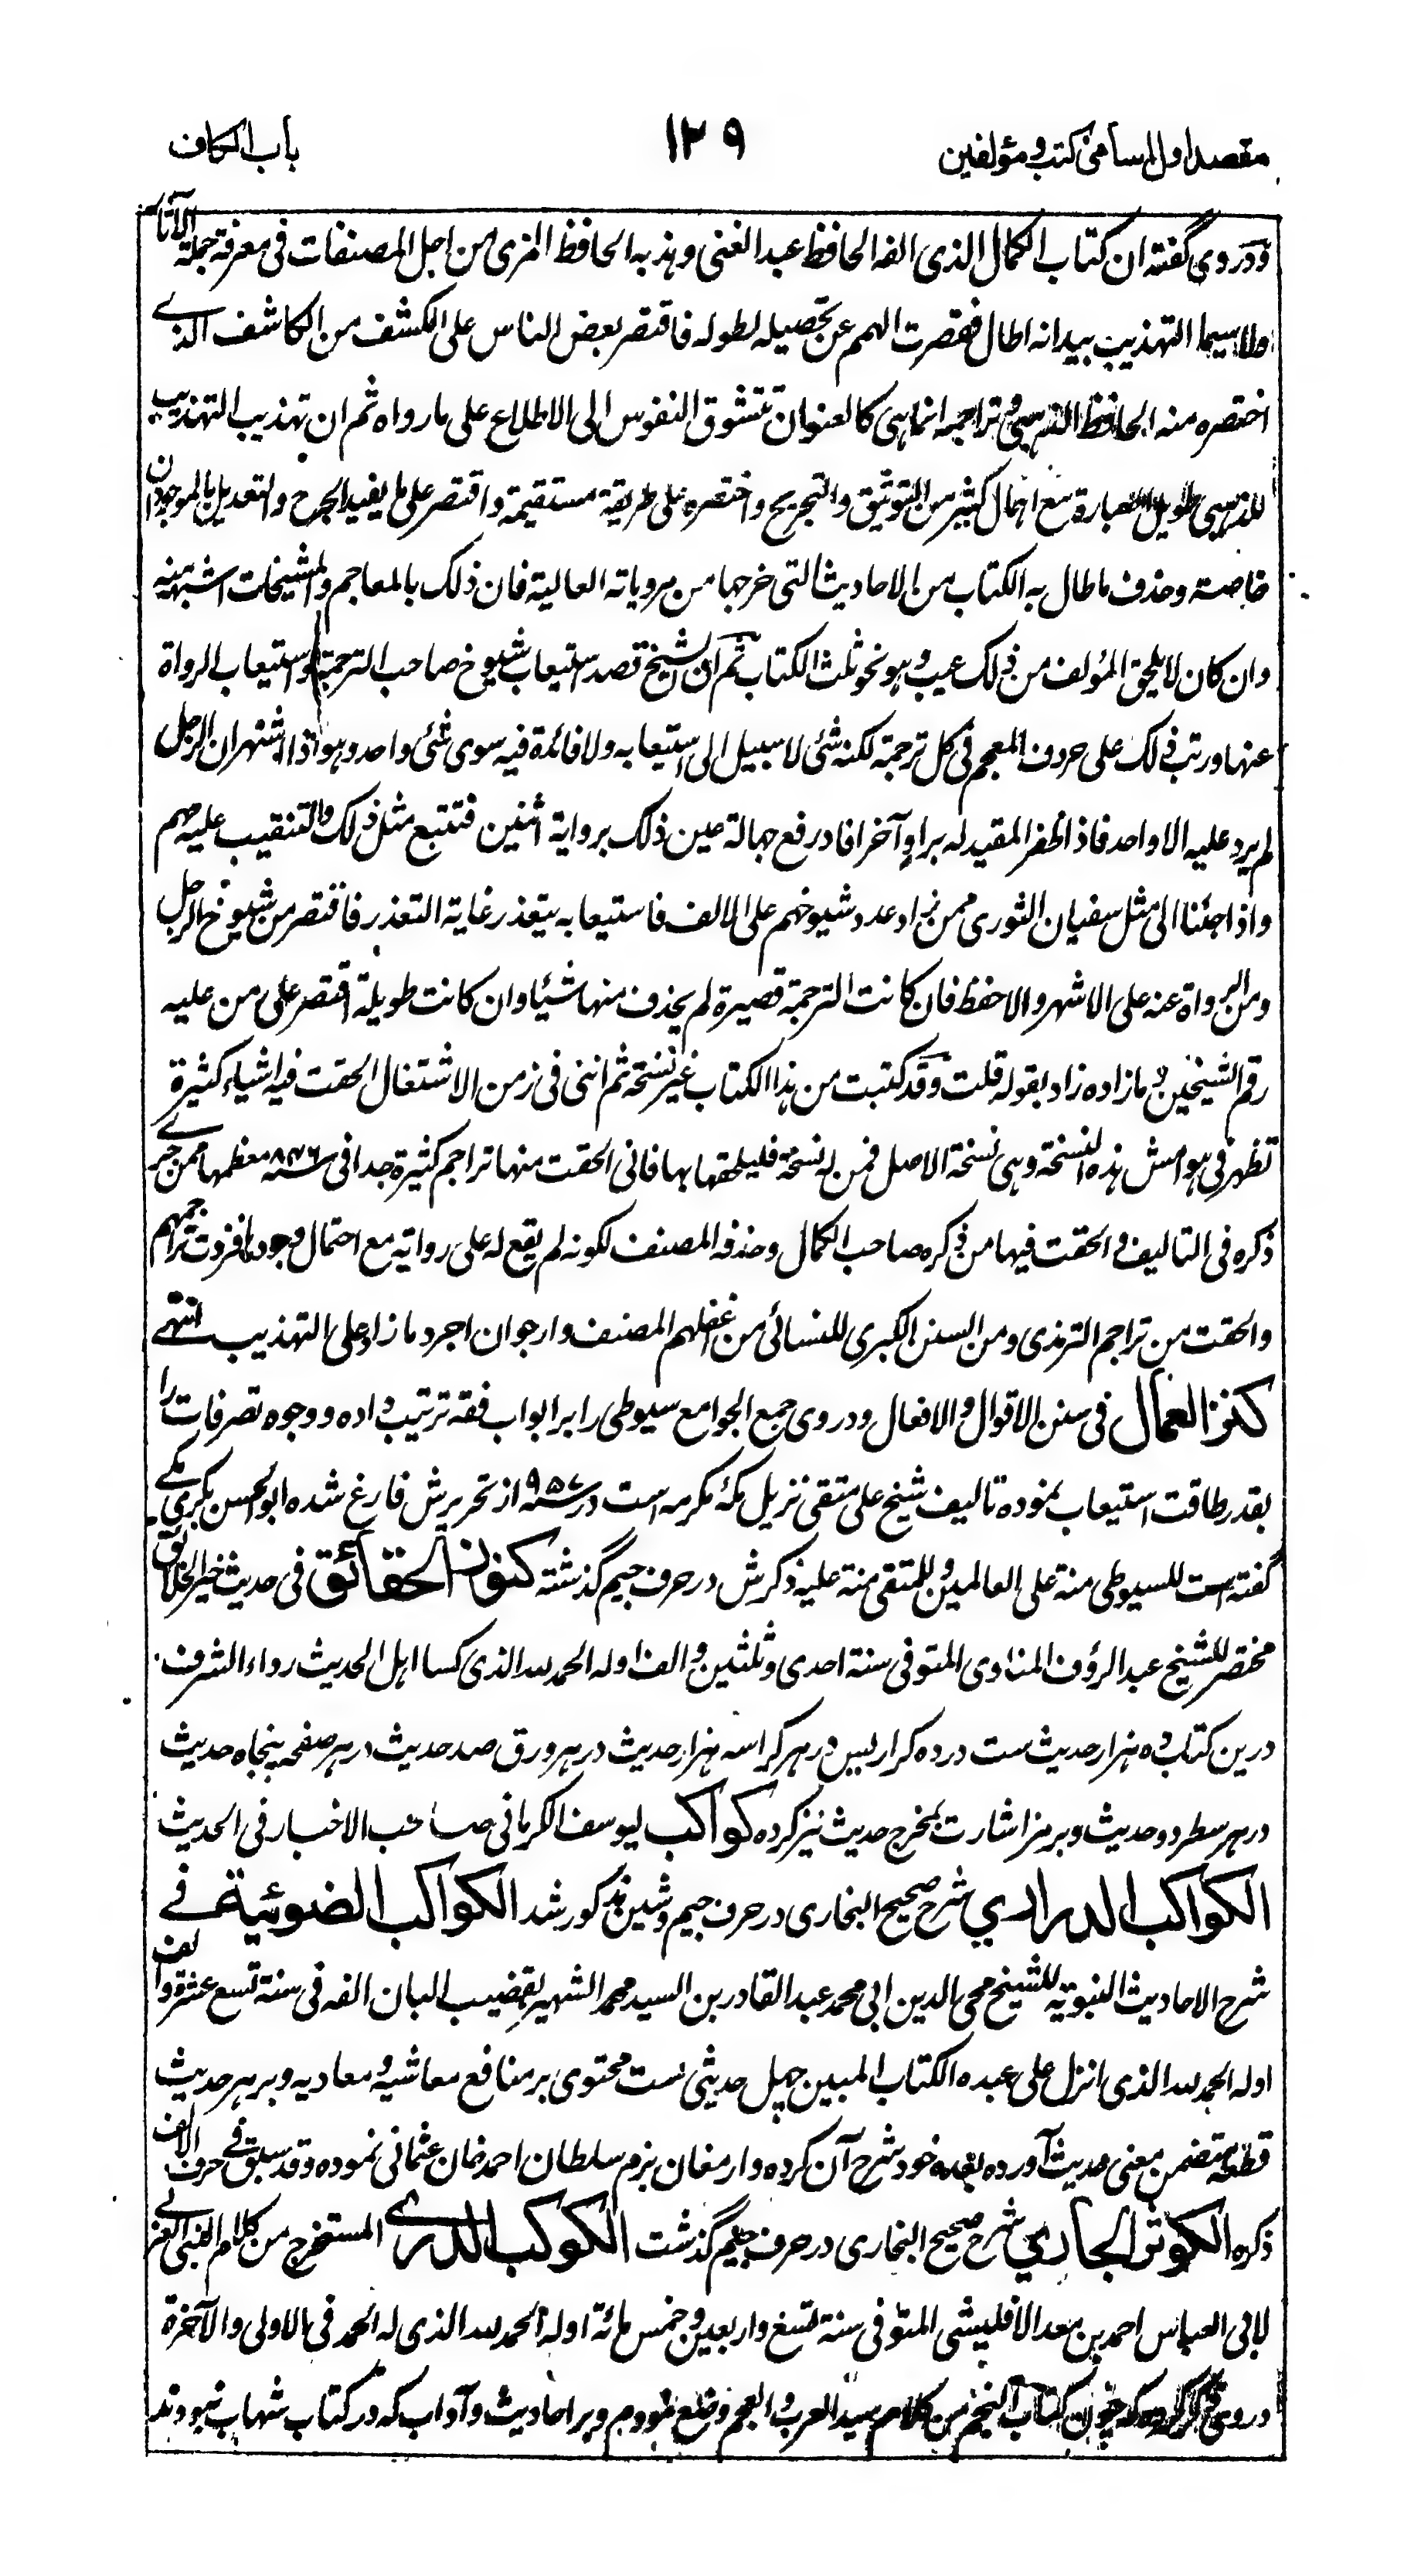 مقصد اول اسامی کتب و مؤلفین ۱۲۹ باب الکاف
و در وی گفته ان کتاب الکمال الذی الفه الحافظ عبد الغنی وهذبه الحافظ المزی من اجل المصنفات فی معرفة حملة الآثار
ولا سیما التهذیب بیدانه اطال فقصرت الهمم عن تحصیله لطوله فاقتصر بعض الناس علی الکشف من الکاشف الذی
اختصره منه الحافظ الذهبی وتراجمه انما هی کالعنوان تتشوق النفوس الی الاطلاع علی ما رواه ثم ان تهذیب التهذیب
للذهبی طویل العبارة مع اهمال کثیر من التوثیق والتجریح واختصره علی طریقة مستقیمة واقتصر علی ما یفید الجرح والتعدیل بالموجودان
خاصة وحذف ما طال به الکتاب من الاحادیث التی خرجها من مرویاته العالیة فان ذلک بالمعاجم والمشیخات اشبه منه
وان کان لا یلحق المؤلف من ذلک عیب وهو نحو ثلث الکتاب ثم ان الشیخ قصد استیعاب شیوخ صاحب الترجمة واستیعاب الرواة
عنها ورتب ذلک علی حروف المعجم فی کل ترجمة لکنه شئ لا سبیل الی استیعابه ولا فائدة فیه سوی شئ واحد وهو اذا اشتهر ان الرجل
لم یرد علیه الا واحد فاذا ظفر المقید له براوٍ آخر افاد رفع جهالة عین ذلک بروایة اثنین فتتبع مثل ذلک والتنقیب علیه مهم
واذا جئنا الی مثل سفیان الثوری ممن زاد عدد شیوخهم علی الالف فاستیعابه یتعذر غایة التعذر فاقتصر من شیوخ الرجل
ومن الرواة عنه علی الاشهر والاحفظ فان کانت الترجمة قصیرة لم یحذف منها شیئا وان کانت طویلة اقتصر علی من علیه
رقم الشیخین وما زاده زاد بقوله قلت وقد کتبت من هذا الکتاب غیر نسخة ثم اننی فی زمن الاشتغال الحقت فیه اشیاء کثیرة
تظهر فی هوامش هذه النسخة وهی نسخة الاصل فمن له نسخة فلیلحقها بها فانی الحقت منها تراجم کثیرة جدا فی سنه ۸۴۶ معظمها ممن جری
ذکره فی التالیف والحقت فیها من ذکره صاحب الکمال وحذفه المصنف لکونه لم یقع له علی روایته مع احتمال وجودها فزدت تراجمهم
والحقت من تراجم الترمذی ومن السنن الکبری للنسائی من اغفلهم المصنف وارجو ان اجرد ما زاد علی التهذیب انتهی
کنز العمال فی سنن الاقوال والافعال و در وی جمع الجوامع سیوطی را بر ابواب فقه ترتیب داده و وجوه تصرفات را
بقدر طاقت استیعاب نموده تالیف شیخ علی متقی نزیل مکهٔ مکرمه است در سنه ۹۵۷ از تحریرش فارغ شده ابو الحسن بکری مکی
گفته است للسیوطی منة علی العالمین وللمتقی منة علیه ذکرش در حرف جیم گذشته کنوز الحقائق فی حدیث خیر الخلائق
مختصر للشیخ عبد الرؤف المناوی المتوفی سنة احدی وثلثین والف اوله الحمد لله الذی کسا اهل الحدیث رداء الشرف
درین کتاب ده هزار حدیث ست در ده کراریس در هر کراسه هزار حدیث در هر ورق صد حدیث در هر صفحه پنجاه حدیث
در هر سطر دو حدیث و برمز اشارت بمخرج حدیث نیز کرده کواکب لیوسف الکرمانی صاحب الاخبار فی الحدیث
الکواکب الدراری شرح صحیح البخاری در حرف جیم و شین مذکور شد الکواکب الضوئیة فی
شرح الاحادیث النبویة للشیخ محی الدین ابی محمد عبد القادر بن السید محمد الشهیر بقضیب البان الفه فی سنة تسع عشرة والف
اوله الحمد لله الذی انزل علی عبده الکتاب المبین چهل حدیثی ست محتوی بر منافع معاشیه و معادیه و بر هر حدیث
قطعه متضمن معنی حدیث آورده بعده خود شرح آن کرده و ارمغان بزم سلطان احمد خان عثمانی نموده وقد سبق فی حرف الالف
ذکره الکوثر الجاری شرح صحیح البخاری در حرف جیم گذشت الکوکب الدری المستخرج من کلام النبی العربی
لابی العباس احمد بن معد الاقلیشی المتوفی سنة تسع واربعین وخمس مائة اوله الحمد لله الذی له الحمد فی الاولی والآخرة
در وی ذکر کرده که چون کتاب النجم من کلام سید العرب والعجم وضع نمودم و بر احادیث و آداب که در کتاب شهاب نبودند